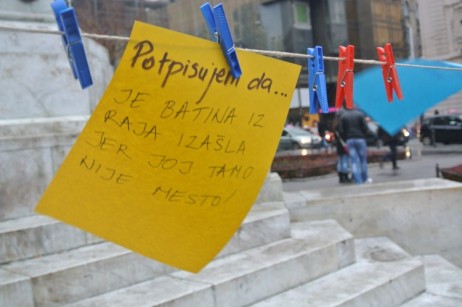 Potpisujem da...
JE BATINA IZ
RAJA IZAŠLA
JER JOJ TAMO
NIJE MESTO!